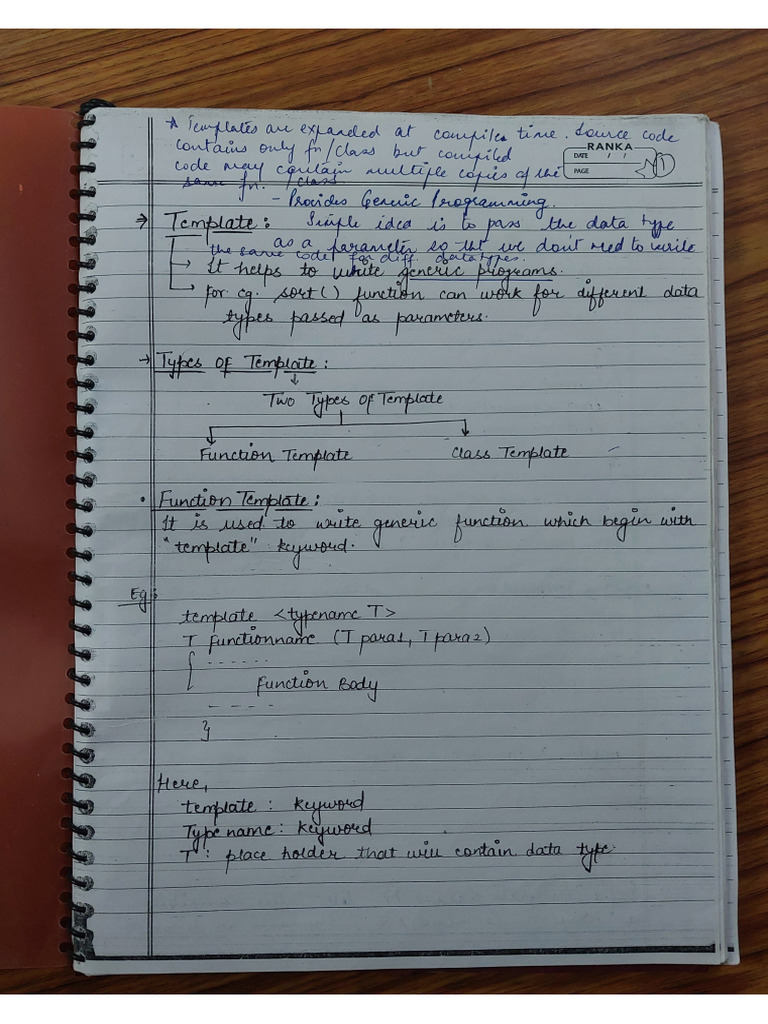 * Templates are expanded at compiler time. Source code
contains only fn/class but compiled
code may contain multiple copies of the
same fn. /class
RANKA
DATE / /
PAGE
1
- Provides Generic Programming.
→ Template: Simple idea is to pass the data type
as a parameter so tht we don't need to write
the same code for diff. datatypes.
→ It helps to write generic programs.
→ For eg. sort() function can work for different data
types passed as parameters.
→ Types OF Template:
↓
Two Types of Template
Function Template Class Template
• Function Template:
It is used to write generic function which begin with
"template" keyword.
Eg:
template <typename T>
T Functionname (T para1, T para2)
{ ------
Function Body
- - - -
}
Here,
template: keyword
Type name: keyword
T: place holder that will contain data type